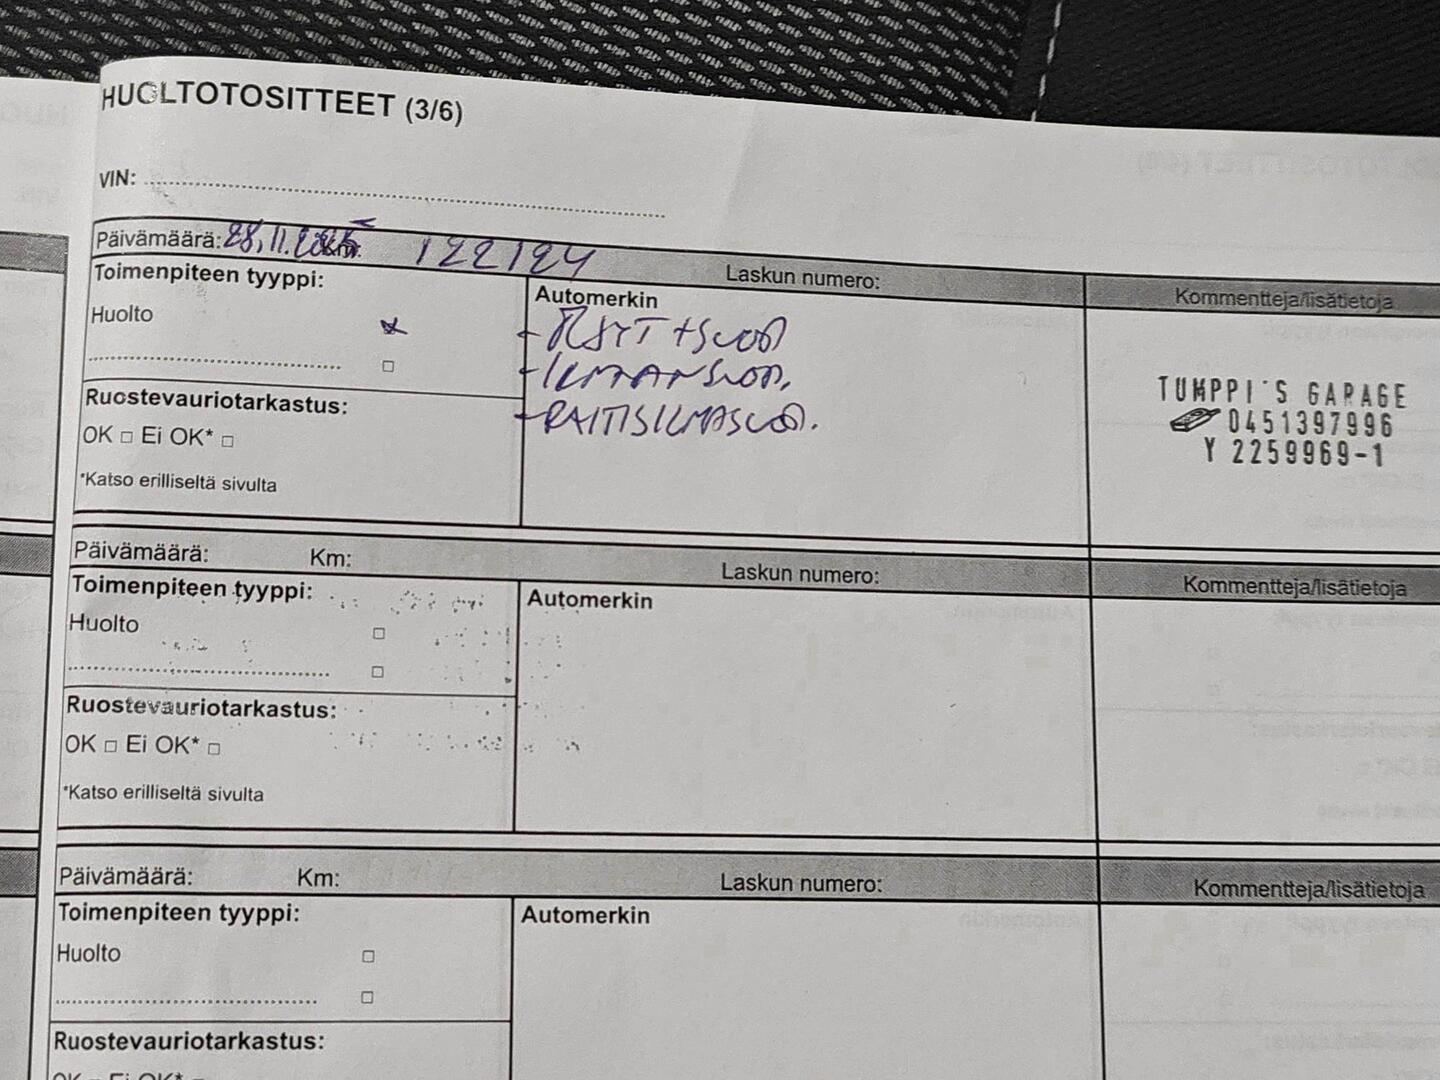 HUOLTOTOSITTEET (3/6)
VIN:
Päivämäärä: 28.11.2025 Km: 122124 Laskun numero: Kommentteja/lisätietoja
Toimenpiteen tyyppi: Automerkin
Huolto
- ÖLJYT + SUOD
- ILMANSUOD.
- RAITISILMASUOD.
TUMPPI'S GARAGE
0451397996
Y 2259969-1
Ruostevauriotarkastus:
OK □ Ei OK* □
*Katso erilliseltä sivulta
Päivämäärä: Km: Laskun numero: Kommentteja/lisätietoja
Toimenpiteen tyyppi: Automerkin
Huolto □
□
Ruostevauriotarkastus:
OK □ Ei OK* □
*Katso erilliseltä sivulta
Päivämäärä: Km: Laskun numero: Kommentteja/lisätietoja
Toimenpiteen tyyppi: Automerkin
Huolto □
□
Ruostevauriotarkastus:
OK □ Ei OK* □